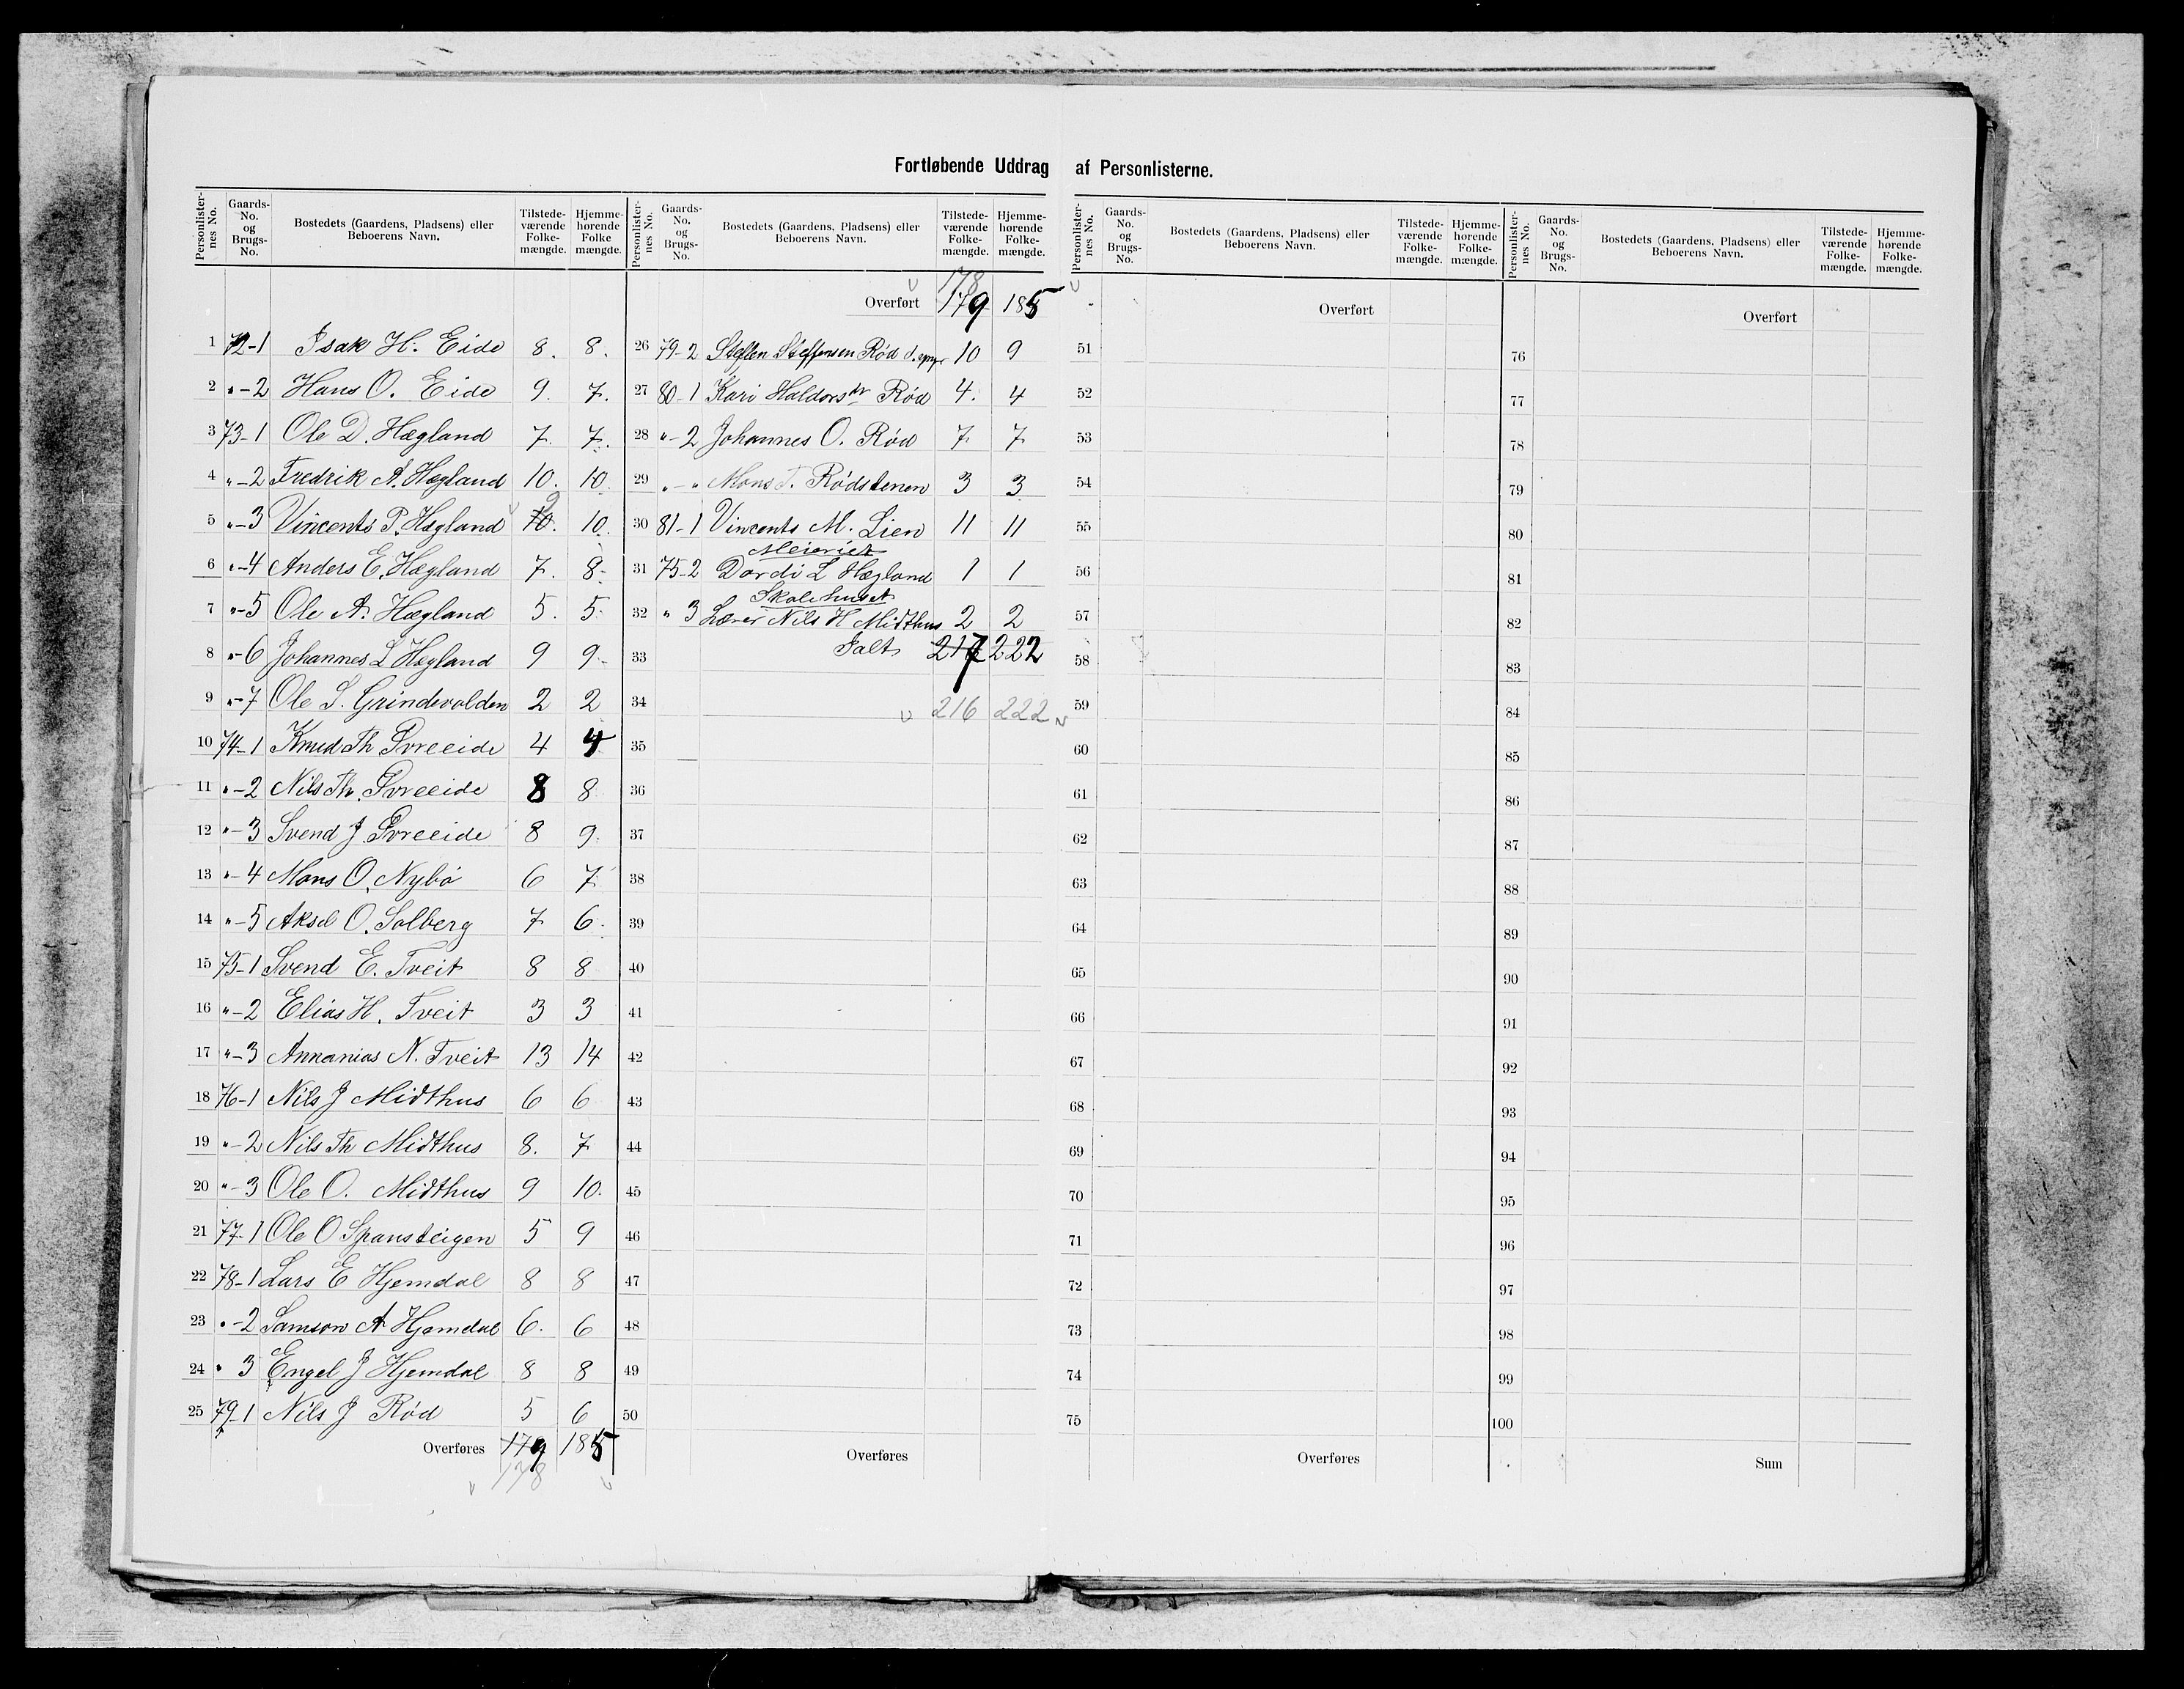 Fortløbende Uddrag af Personlisterne.
Personlisternes No. | Gaards-No. og Brugs-No. | Bostedets (Gaardens, Pladsens) eller Beboerens Navn. | Tilstedeværende Folkemængde. | Hjemmehørende Folkemængde.
1 72-1 Isak H. Eide 8. 8.
2 "-2 Hans O. Eide 9. 7.
3 73-1 Ole D. Hægland 7. 7.
4 "-2 Fredrik A. Hægland 10. 10.
5 "-3 Vincents P. Hægland 10. 9 10.
6 "-4 Anders E. Hægland 7. 8
7 "-5 Ole A. Hægland 5. 5
8 "-6 Johannes L Hægland 9 9
9 "-7 Ole S. Grindevolden 2 2
10 74-1 Knud Th 4 4
11 "-2 Nils Th. 8 8
12 "-3 Svend J 8 9
13 "-4 Mons O. Nybö 6 7
14 "-5 Aksel O. Solberg 7 6
15 75-1 Svend E. Tveit 8 8
16 "-2 Elias H. Tveit 3 3
17 "-3 Annanias N. Tveit 13 14
18 76-1 Nils J Midthus 6 6
19 "-2 Nils Th Midthus 8. 7
20 "-3 Ole O. Midthus 9 10.
21 77-1 Ole O Spansteigen 5 9
22 78-1 Lars E Hjemdal 8 8
23 "-2 Samson A Hjemdal 6. 6
24 " 3 Engel J Hjemdal 8 8
25 79-1 Nils J Rød 5 6
Overføres 179 185
178
Personlisternes No. | Gaards-No. og Brugs-No. | Bostedets (Gaardens, Pladsens) eller Beboerens Navn. | Tilstedeværende Folkemængde. | Hjemmehørende Folkemængde.
178
Overført 179 185
26 79-2 Steffen Steffensen Rød 10 9
27 80-1 Kari Haldorsdr Rød 4. 4
28 "-2 Johannes O. Rød 7 7
29 "-" Mons T. Rødstenen 3 3
30 81-1 Vincents M. Lien 11 11
Meieriet
31 75-2 Dordi L Hægland 1 1
Skolehuset
32 " 3 Lærer Nils H Midthus 2 2
33 Ialt 217 222
34 216 222
35
36
37
38
39
40
41
42
43
44
45
46
47
48
49
50
Overføres
Personlisternes No. | Gaards-No. og Brugs-No. | Bostedets (Gaardens, Pladsens) eller Beboerens Navn. | Tilstedeværende Folkemængde. | Hjemmehørende Folkemængde.
Overført
51
52
53
54
55
56
57
58
59
60
61
62
63
64
65
66
67
68
69
70
71
72
73
74
75
Overføres
Personlisternes No. | Gaards-No. og Brugs-No. | Bostedets (Gaardens, Pladsens) eller Beboerens Navn. | Tilstedeværende Folkemængde. | Hjemmehørende Folkemængde.
Overført
76
77
78
79
80
81
82
83
84
85
86
87
88
89
90
91
92
93
94
95
96
97
98
99
100
Sum